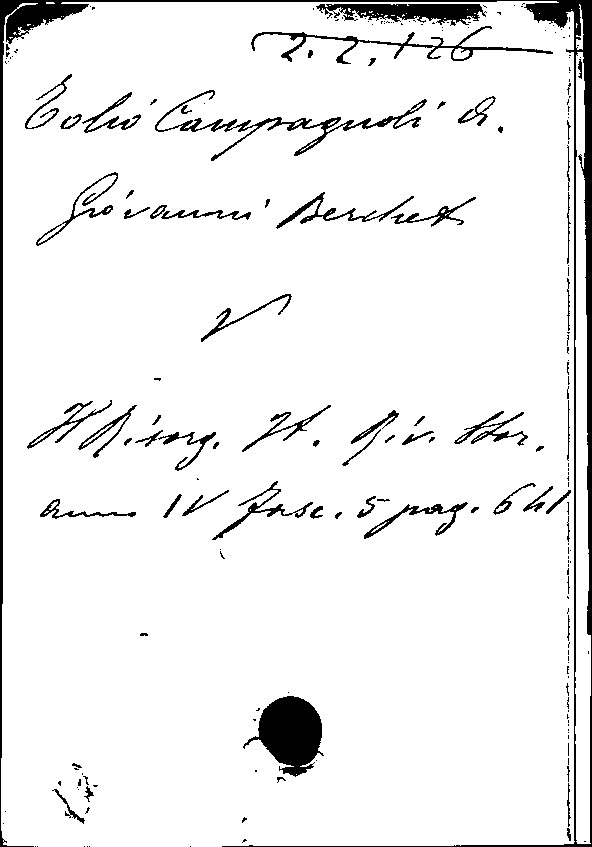 2. 2. 126
Esilio Campagnoli di
Giovanni Berchet
V
Il Risorg. It. Riv. Stor.
anno IV Fasc. 5 pag. 641